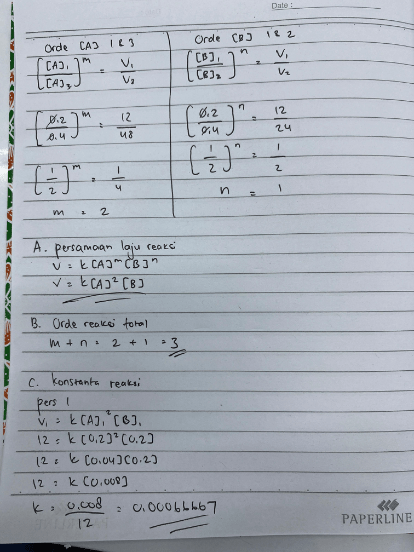 Date :
Orde [A] 1 & 3
([A]1 / [A]3)^m = V1 / V3
(0.2 / 0.4)^m = 12 / 48
(1 / 2)^m = 1 / 4
m = 2
Orde [B] 1 & 2
([B]1 / [B]2)^n = V1 / V2
(0.2 / 0.4)^n = 12 / 24
(1 / 2)^n = 1 / 2
n = 1
A. persamaan laju reaksi
V = k[A]^m[B]^n
V = k[A]²[B]
B. Orde reaksi total
m + n = 2 + 1 = 3
C. konstanta reaksi
pers 1
V1 = k[A]1²[B]1
12 = k [0.2]²[0.2]
12 = k [0.04][0.2]
12 = k [0.008]
k = 0.008 / 12 = 0.00066667
PAPERLINE